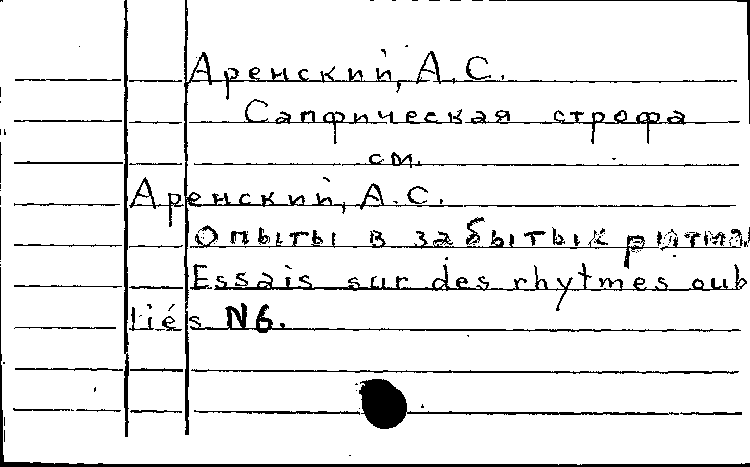 Аренский, А.С.
Сапфическая строфа
см.
Аренский, А.С.
Опыты в забытых ритмах
Essais sur des rhytmes oub
liés N6.